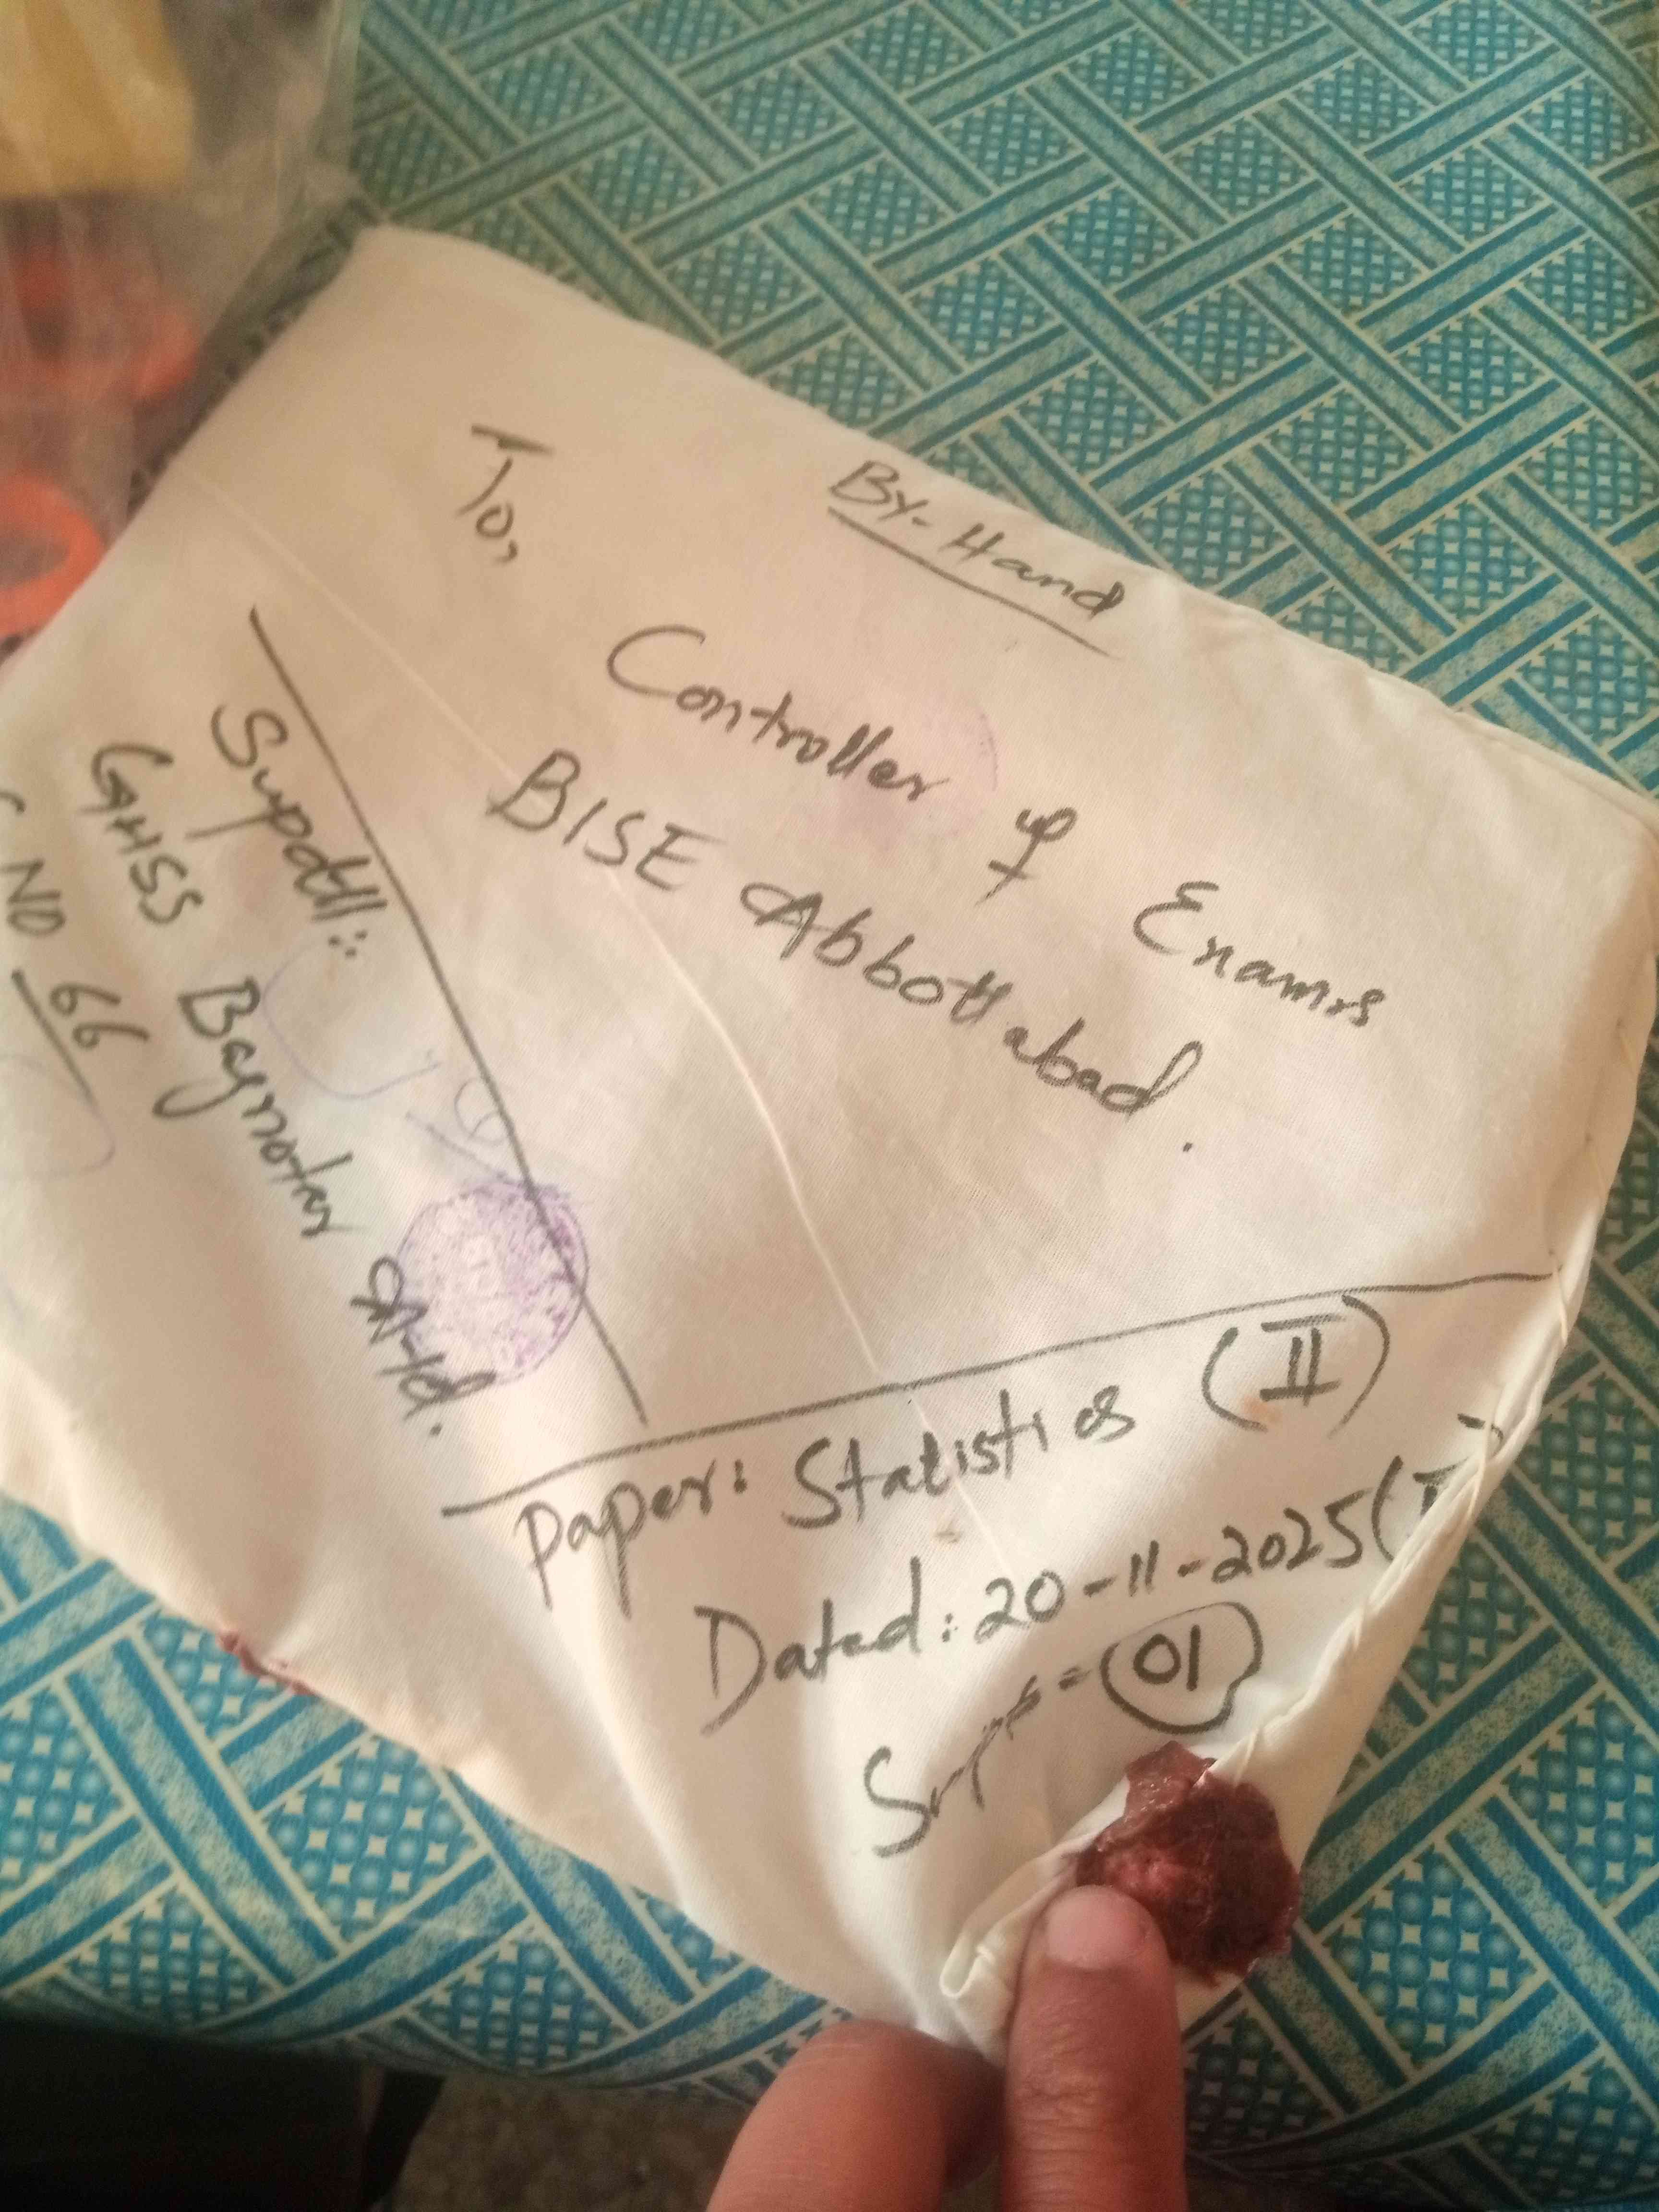 By-Hand
To,
Controller of Exams
BISE Abbottabad.
Supdtt:
GHSS Bagnotar A-td.
NO 66
Paper: Statistics (II)
Dated: 20-11-2025(
Supp = 01